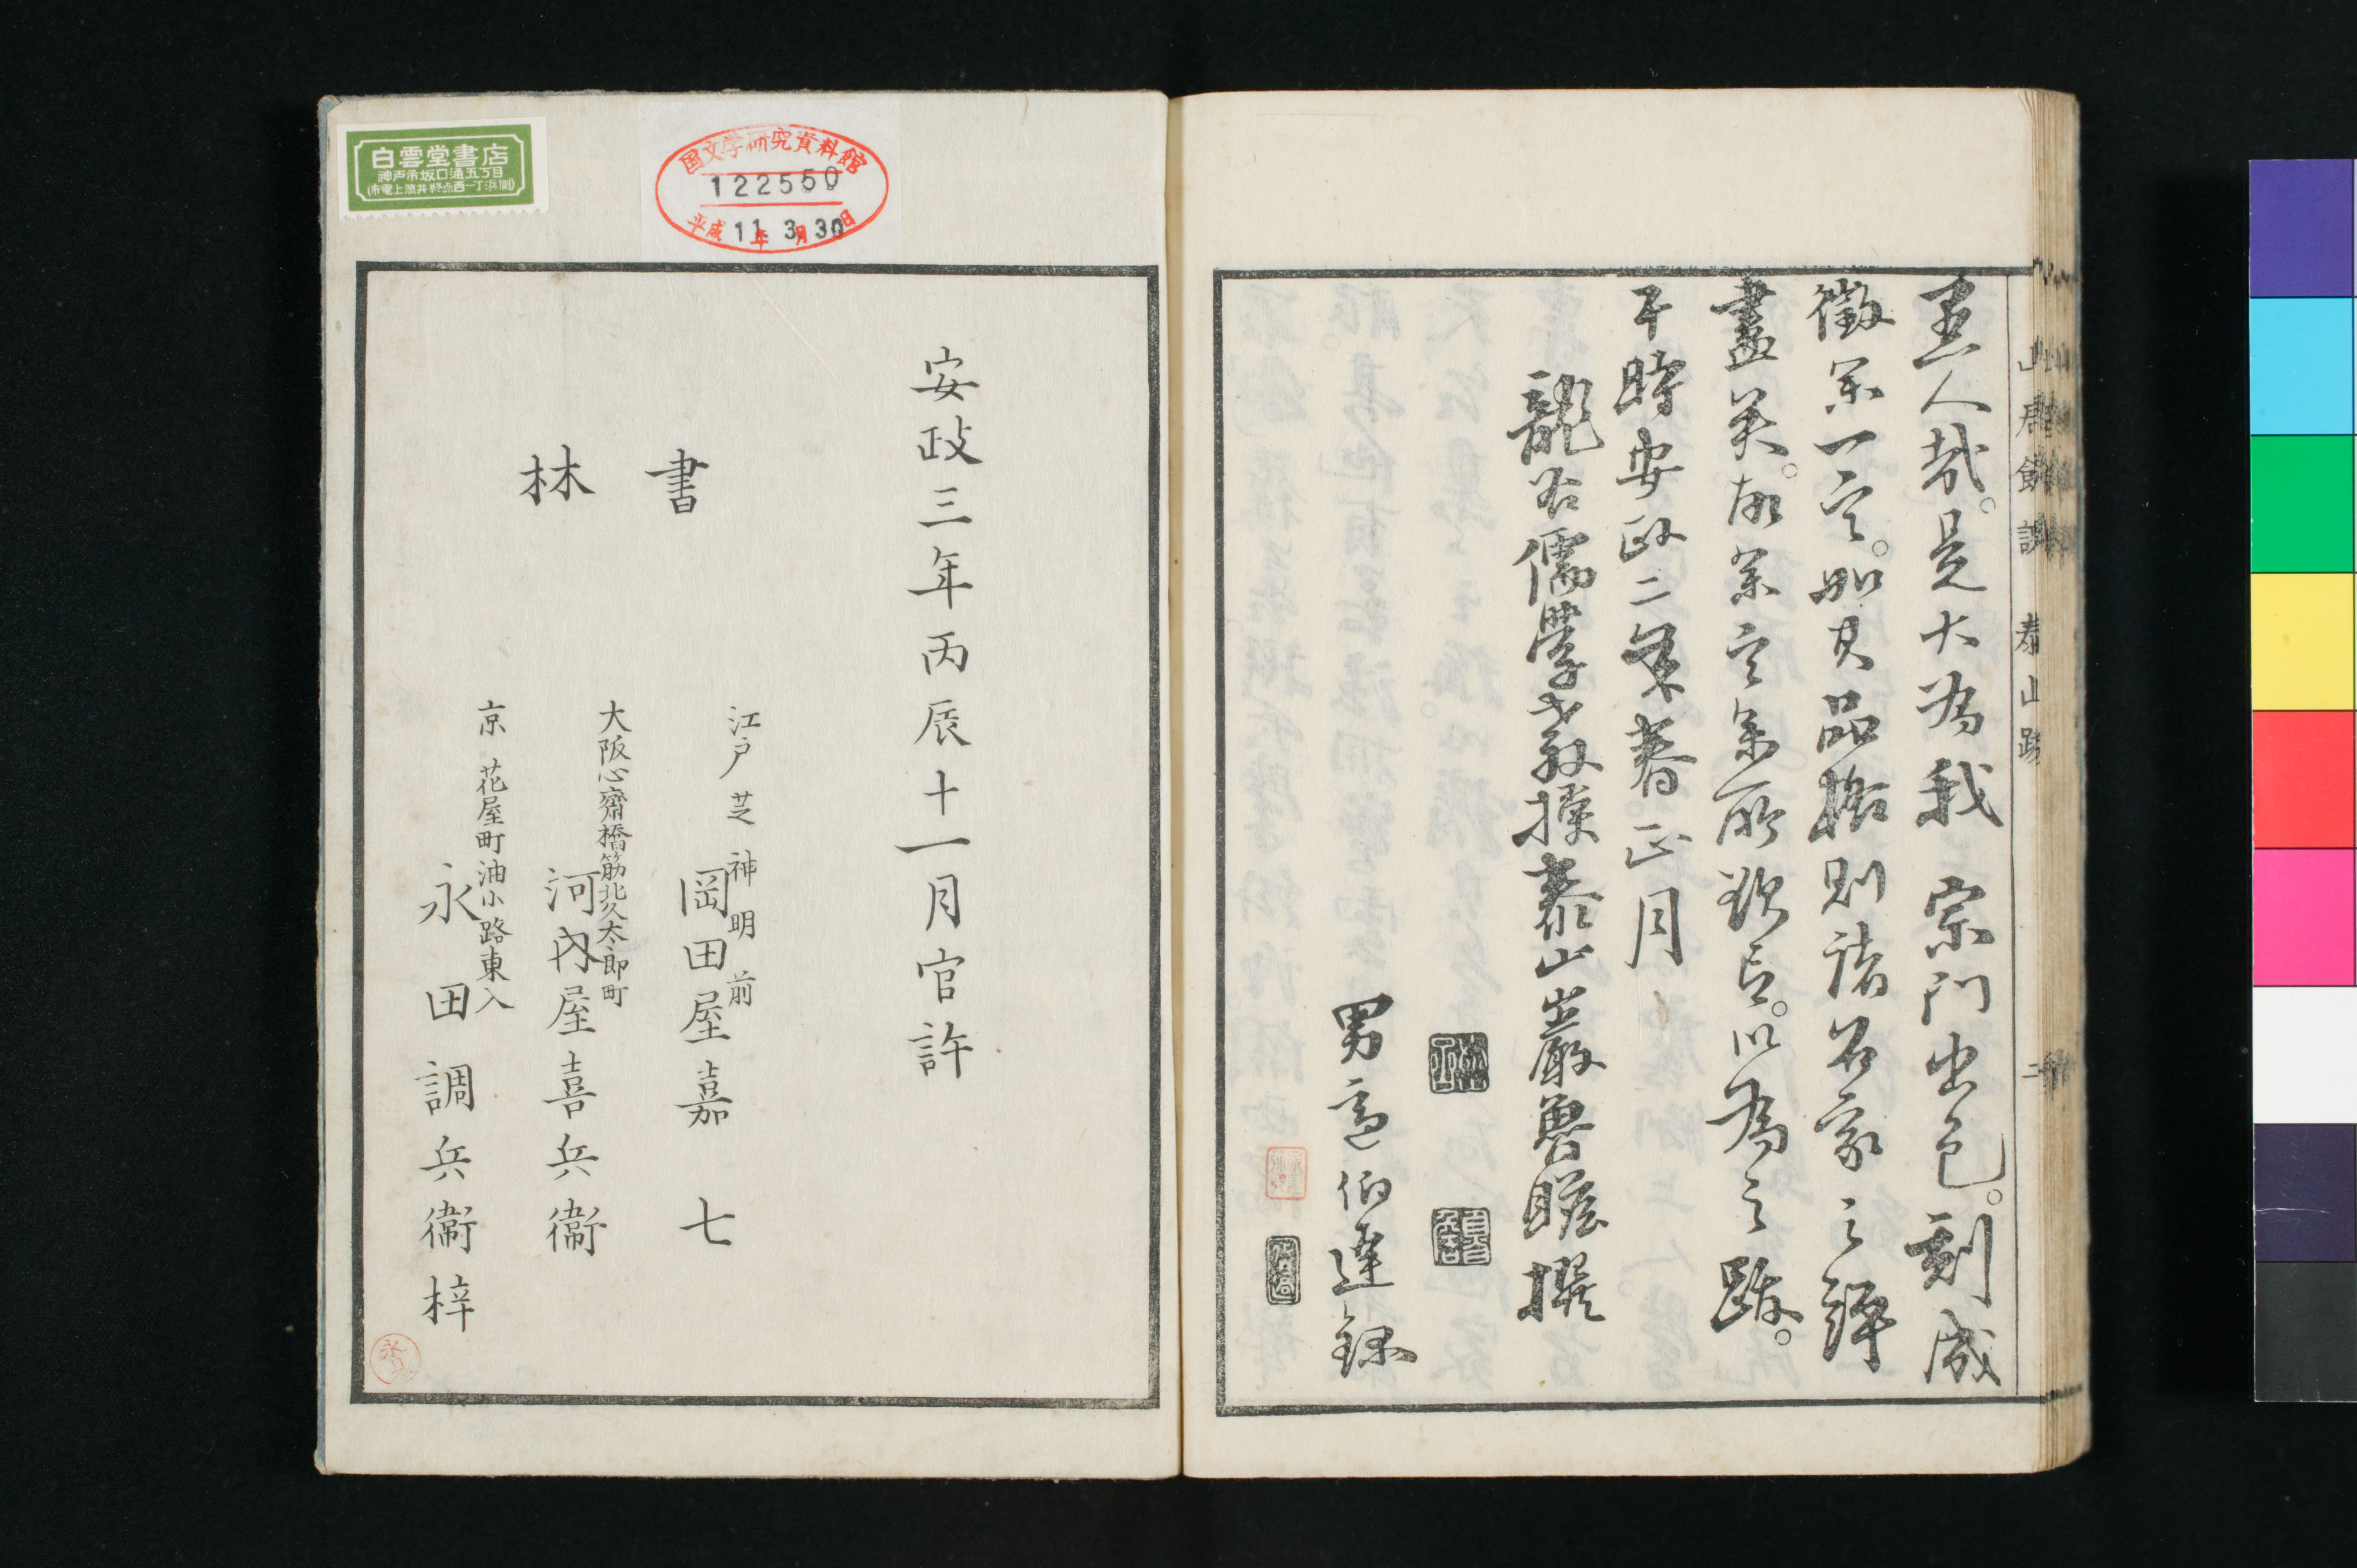 其人哉。是大為我宗門出色。刻成
徵余一言。如其品格則諸名家之評
盡矣。故余言余所欲言。以為之跋。
于時安政二年春正月
龍谷儒學教授泰山巌魯瞻撰
男䆳伯達録
山房餘謌 泰山跋 二
安政三年丙辰十一月官許
書林
江戸芝神明前
岡田屋嘉七
大阪心齋橋筋北久太郎町
河内屋喜兵衞
京 花屋町油小路東入
永田調兵衞梓
白雲堂書店
神戸市坂口通五丁目
(市電上筒井終点西一丁浜側)
国文学研究資料館
122550
平成11年3月30日